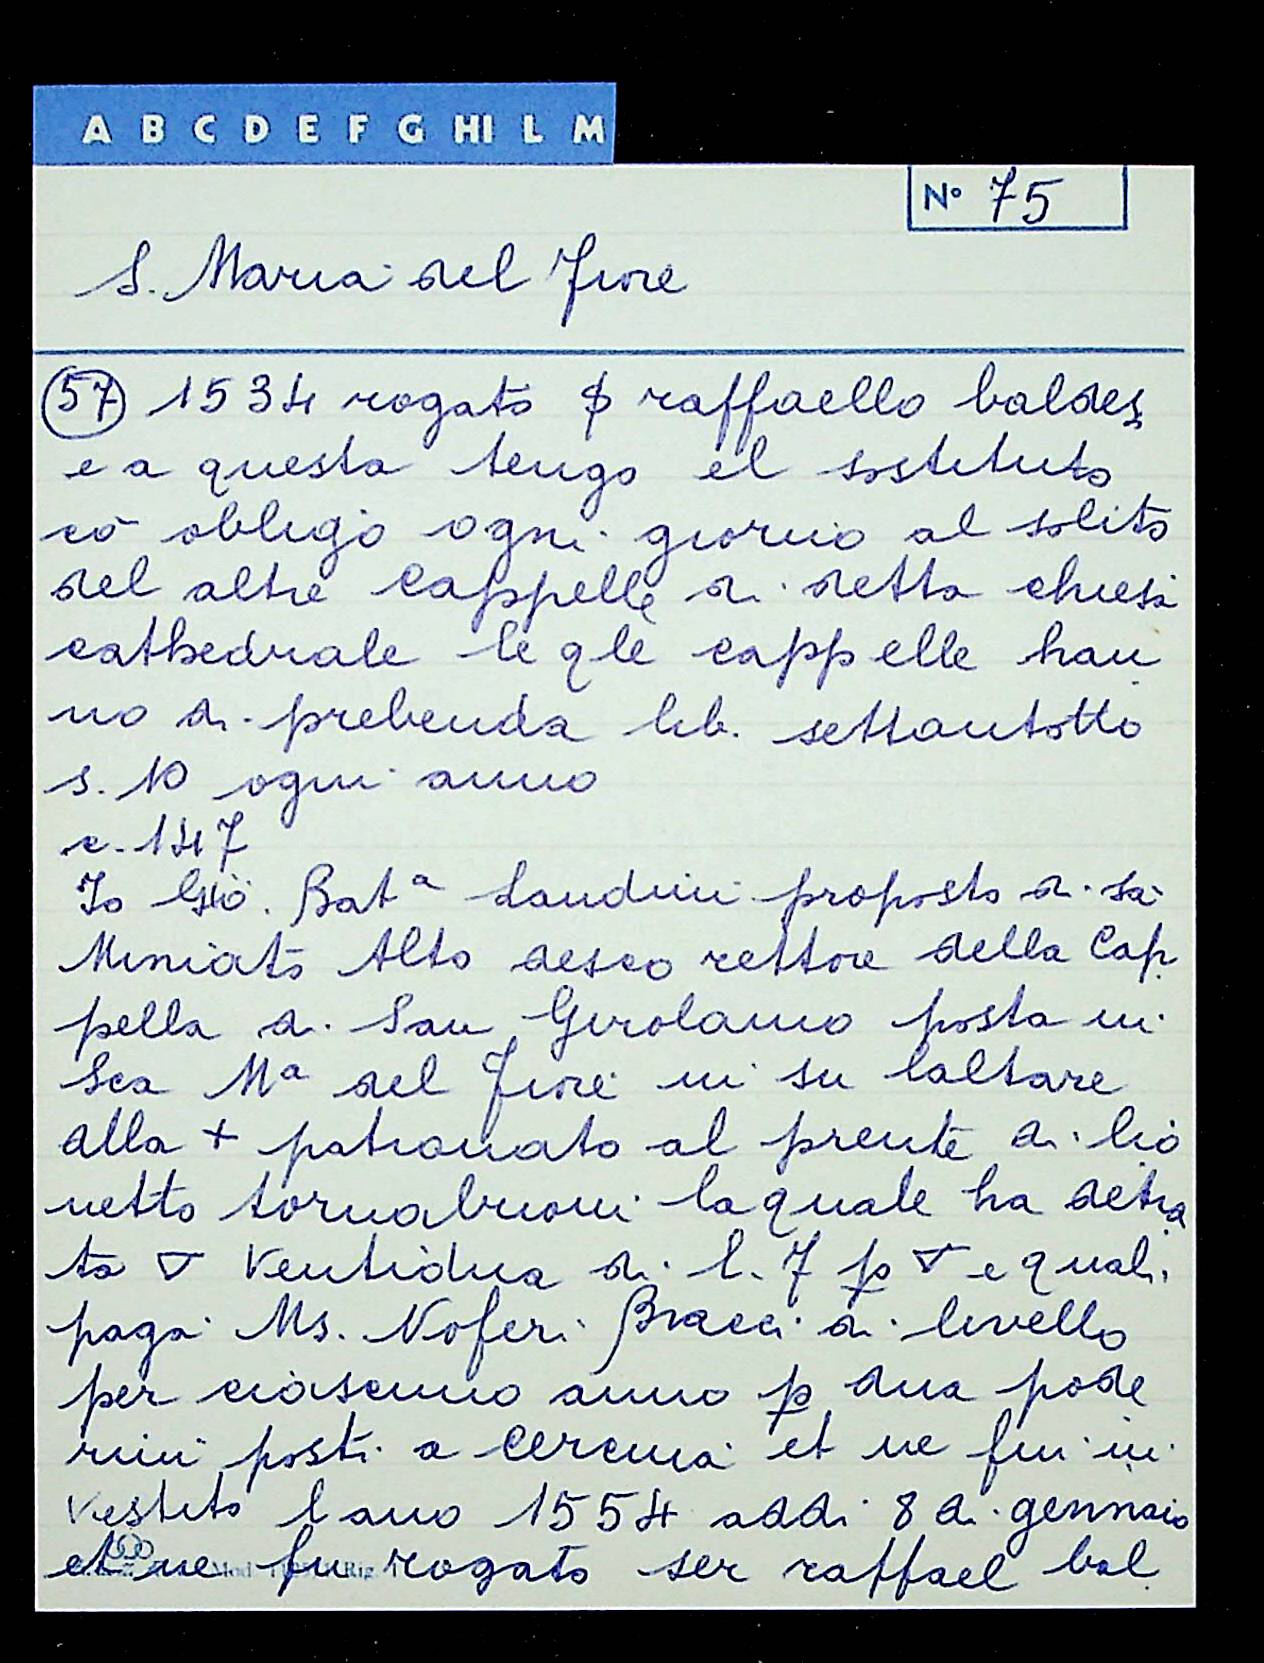 A B C D E F G HI L M
Nº 75
S. Maria del Fiore
57 1534 rogato ꝑ raffaello baldes
e a questa tengo el sostituto
cō obligo ogni giorno al solito
del altre Cappelle di detta chiesa
cathedrale le qlē cappelle han
no di prebenda lib. settantotto
s. 10 ogni anno
c. 147
Io Giō. Batª Landini proposto di sā
Miniato Alto desco rettore della Cap
pella di San Girolamo posta in
Sca Mª del Fiore in su laltare
alla + patronato al prente di lio
netto tornabuoni laquale ha detra
ta ▽ Ventidua di l. 7 p ▽ e quali
paga Ms. Noferi Bracci di livello
per ciascuno anno p dua pode
rini posti a Cercina et ne fui in
vestito lano 1554 addi 8 di gennaio
et ne fu rogato ser raffael bal